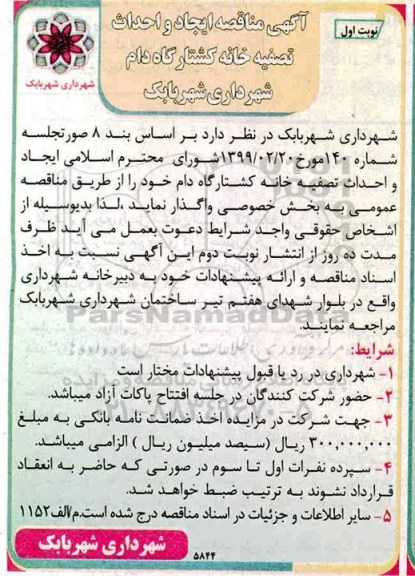 نوبت اول
آگهی مناقصه ایجاد و احداث
تصفیه خانه کشتارگاه دام
شهرداری شهربابک
شهرداری شهربابک
شهرداری شهربابک در نظر دارد بر اساس بند ۸ صورتجلسه
شماره ۱۴۰مورخ ۱۳۹۹/۰۲/۲۰شورای محترم اسلامی ایجاد
و احداث تصفیه خانه کشتارگاه دام خود را از طریق مناقصه
عمومی به بخش خصوصی واگذار نماید ،لذا بدیوسیله از
اشخاص حقوقی واجد شرایط دعوت بعمل می آید ظرف
مدت ده روز از انتشار نوبت دوم این آگهی نسبت به اخذ
اسناد مناقصه و ارائه پیشنهادات خود به دبیرخانه شهرداری
واقع در بلوار شهدای هفتم تیر ساختمان شهرداری شهربابک
مراجعه نمایند.
ParsNamadData
شرایط:
۱- شهرداری در رد یا قبول پیشنهادات مختار است
۲- حضور شرکت کنندگان در جلسه افتتاح پاکات آزاد میباشد.
۳- جهت شرکت در مزایده اخذ ضمانت نامه بانکی به مبلغ
۳۰۰,۰۰۰,۰۰۰ ریال (سیصد میلیون ریال ) الزامی میباشد.
۴- سپرده نفرات اول تا سوم در صورتی که حاضر به انعقاد
قرارداد نشوند به ترتیب ضبط خواهد شد.
۵- سایر اطلاعات و جزئیات در اسناد مناقصه درج شده است.م/الف۱۱۵۲
شهرداری شهربابک
۵۸۴۴